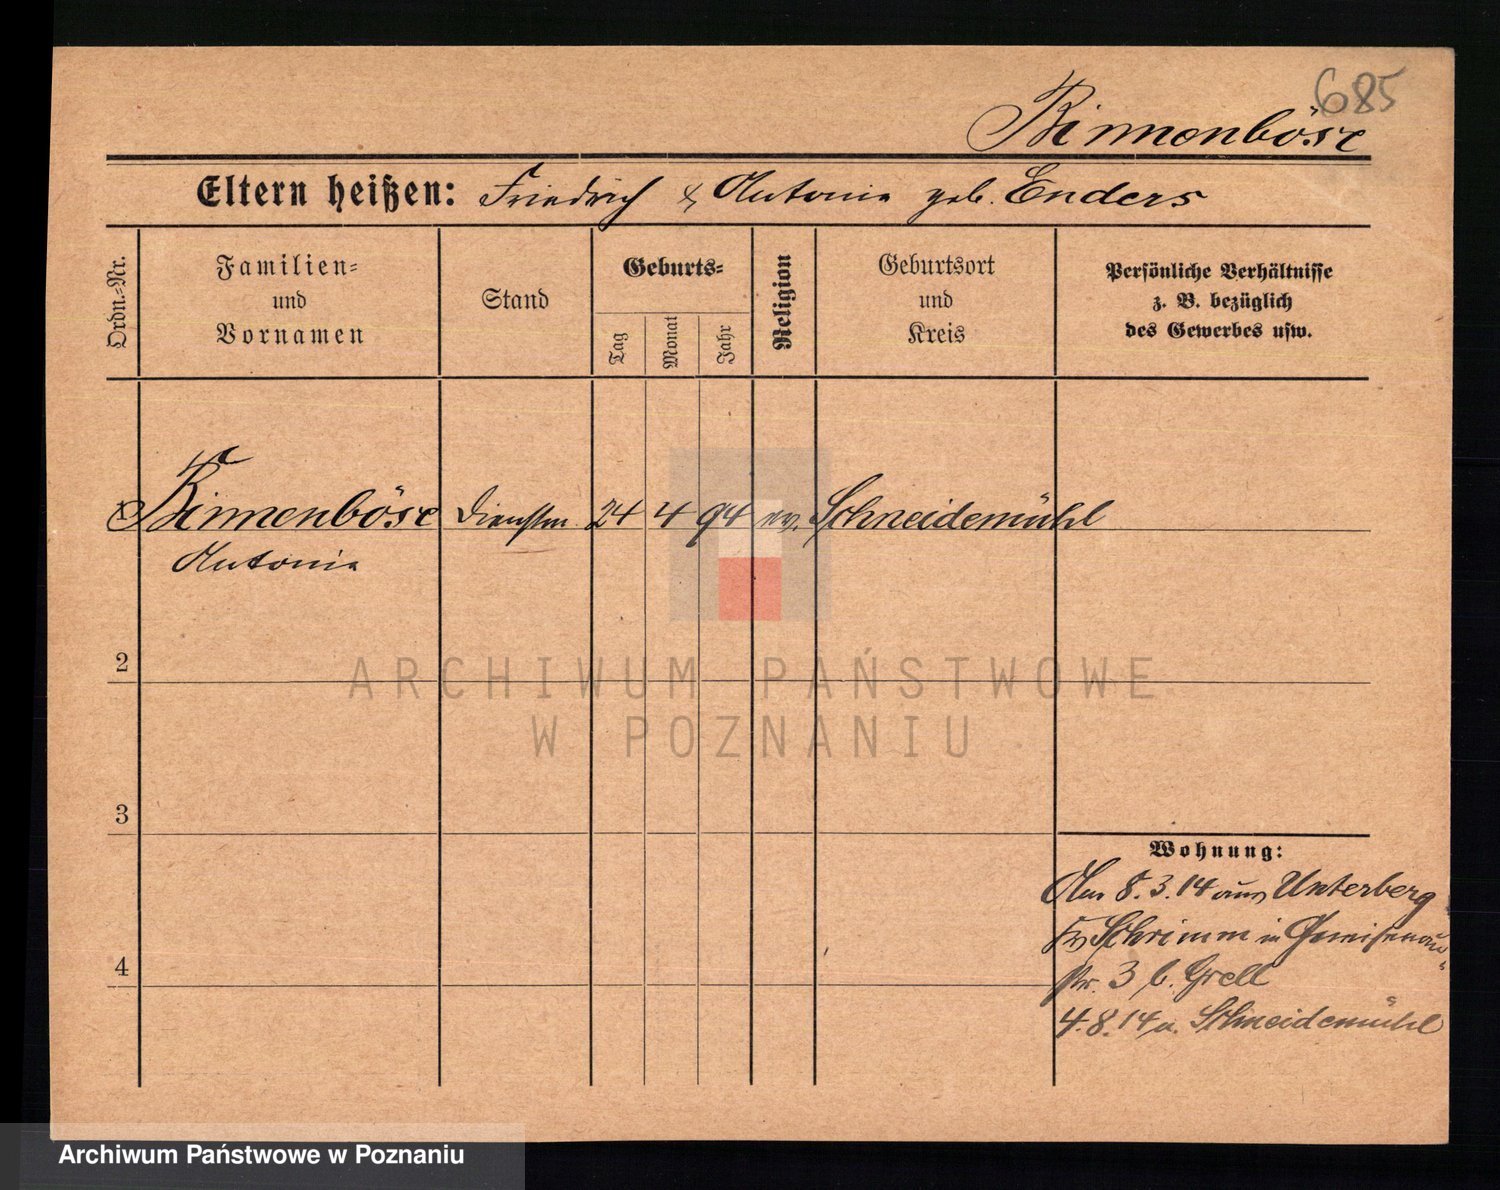 685
Binnenböse
Eltern heißen: Friedrich & Antonie geb. Enders
Ordn.-Nr.
Familien-
und
Vornamen
Stand
Geburts-
Tag
Monat
Jahr
Religion
Geburtsort
und
Kreis
Persönliche Verhältnisse
z. B. bezüglich
des Gewerbes usw.
1 Binnenböse Dienstm. 24 4 94 ev. Schneidemühl
Antonie
2
ARCHIWUM PAŃSTWOWE
W POZNANIU
3
Wohnung:
Am 8.3.14 aus Unterberg
Kr. Schrimm in Gneisenau-
str. 3 b. Grell
4
4.8.14 n. Schneidemühl
Archiwum Państwowe w Poznaniu